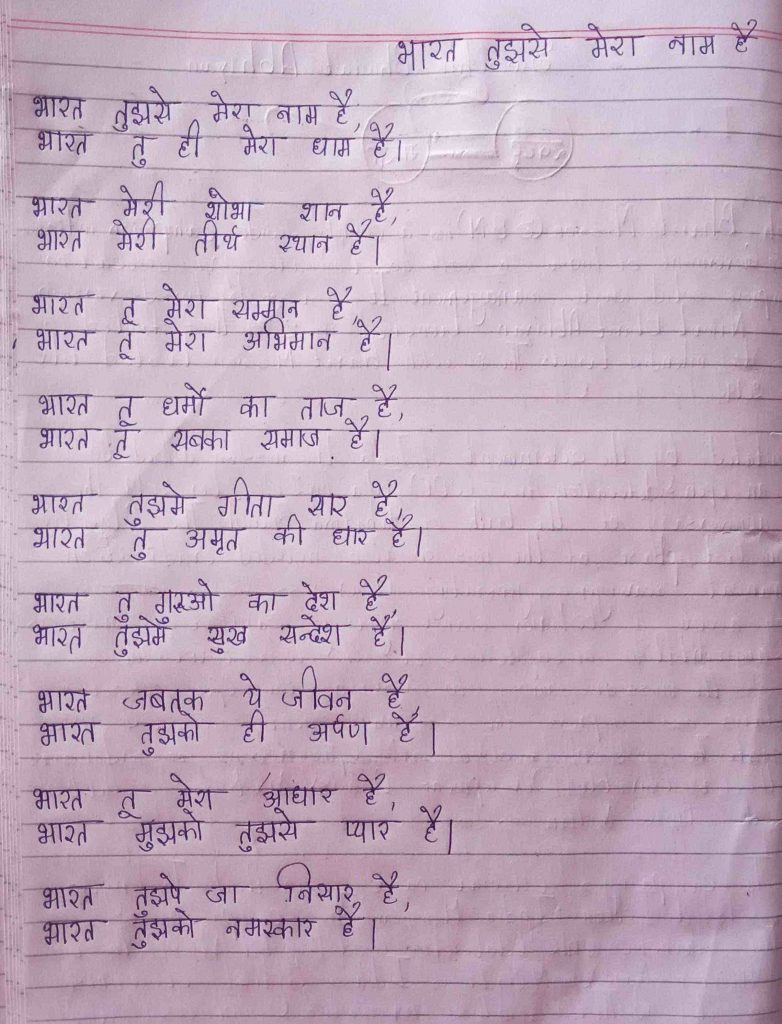 भारत तुझसे मेरा नाम है
भारत तुझसे मेरा नाम है,
भारत तु ही मेरा धाम है।
भारत मेरी शोभा शान है,
भारत मेरी तीर्थ स्थान है।
भारत तू मेरा सम्मान है,
भारत तू मेरा अभिमान है।
भारत तू धर्मो का ताज है,
भारत तू सबका समाज है।
भारत तुझमे गीता सार है,
भारत तु अमृत की धार है।
भारत तु गुरूओ का देश है,
भारत तुझमे सुख सन्देश है।
भारत जबतक ये जीवन है,
भारत तुझको ही अर्पण है।
भारत तू मेरा आधार है,
भारत मुझको तुझसे प्यार है।
भारत तुझपे जा निसार है,
भारत तुझको नमस्कार है।